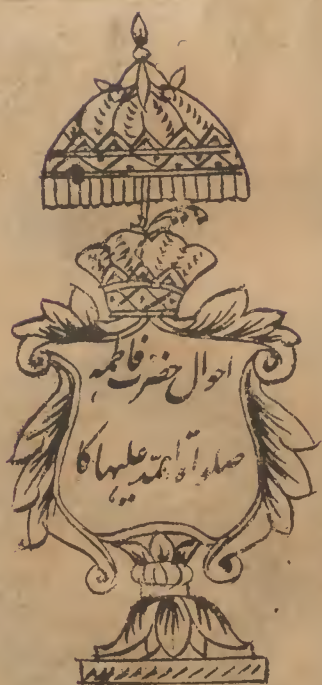 احوال حضرت فاطمہ
صلواۃ اللہ علیہا کا